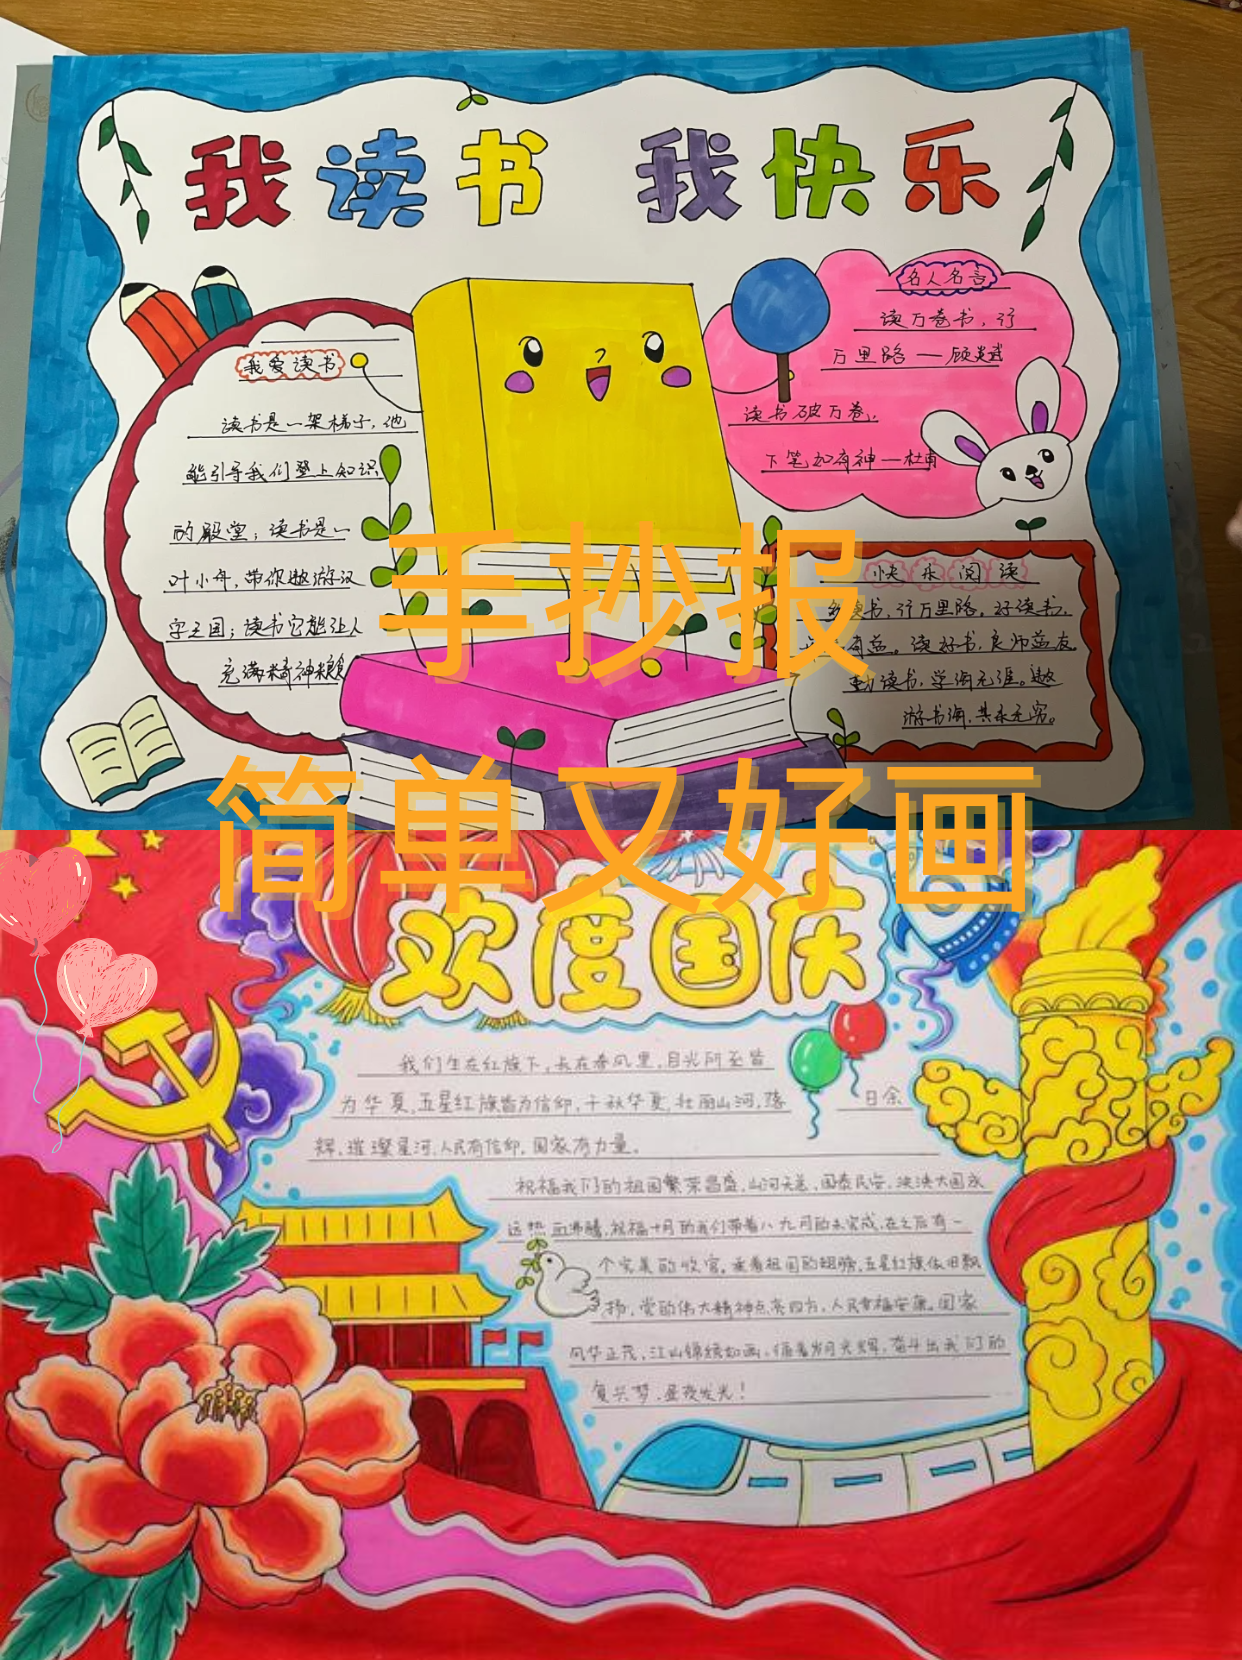 我读书 我快乐
我爱读书
读书是一架梯子，他
能引导我们登上知识
的殿堂；读书是一
叶小舟，带你遨游汉
字之国；读书它能让人
充满精神粮
名人名言
读万卷书，行
万里路 — 顾炎武
读书破万卷，
下笔如有神 — 杜甫
快乐阅读
读书，行万里路。好读书，
有益。读好书，良师益友。
勤读书，学海无涯。遨
游书海，其乐无穷。
手抄报
简单又好画
欢度国庆
我们生在红旗下，长在春风里，目光所至皆
为华夏，五星红旗皆为信仰，千秋华夏，壮丽山河，落日余
辉，璀璨星河，人民有信仰，国家有力量。
祝福我们的祖国繁荣昌盛，山河无恙，国泰民安，泱泱大国
热血沸腾，祝福十月的我们带着八九月的未完成，在之后有一
个完美的收官。乘着祖国的翅膀，五星红旗依旧飘
扬，党的伟大精神点亮四方，人民幸福安康，国家
风华正茂，江山锦绣如画，循着岁月光辉，奋斗出我们的
复兴梦，昼夜发光！